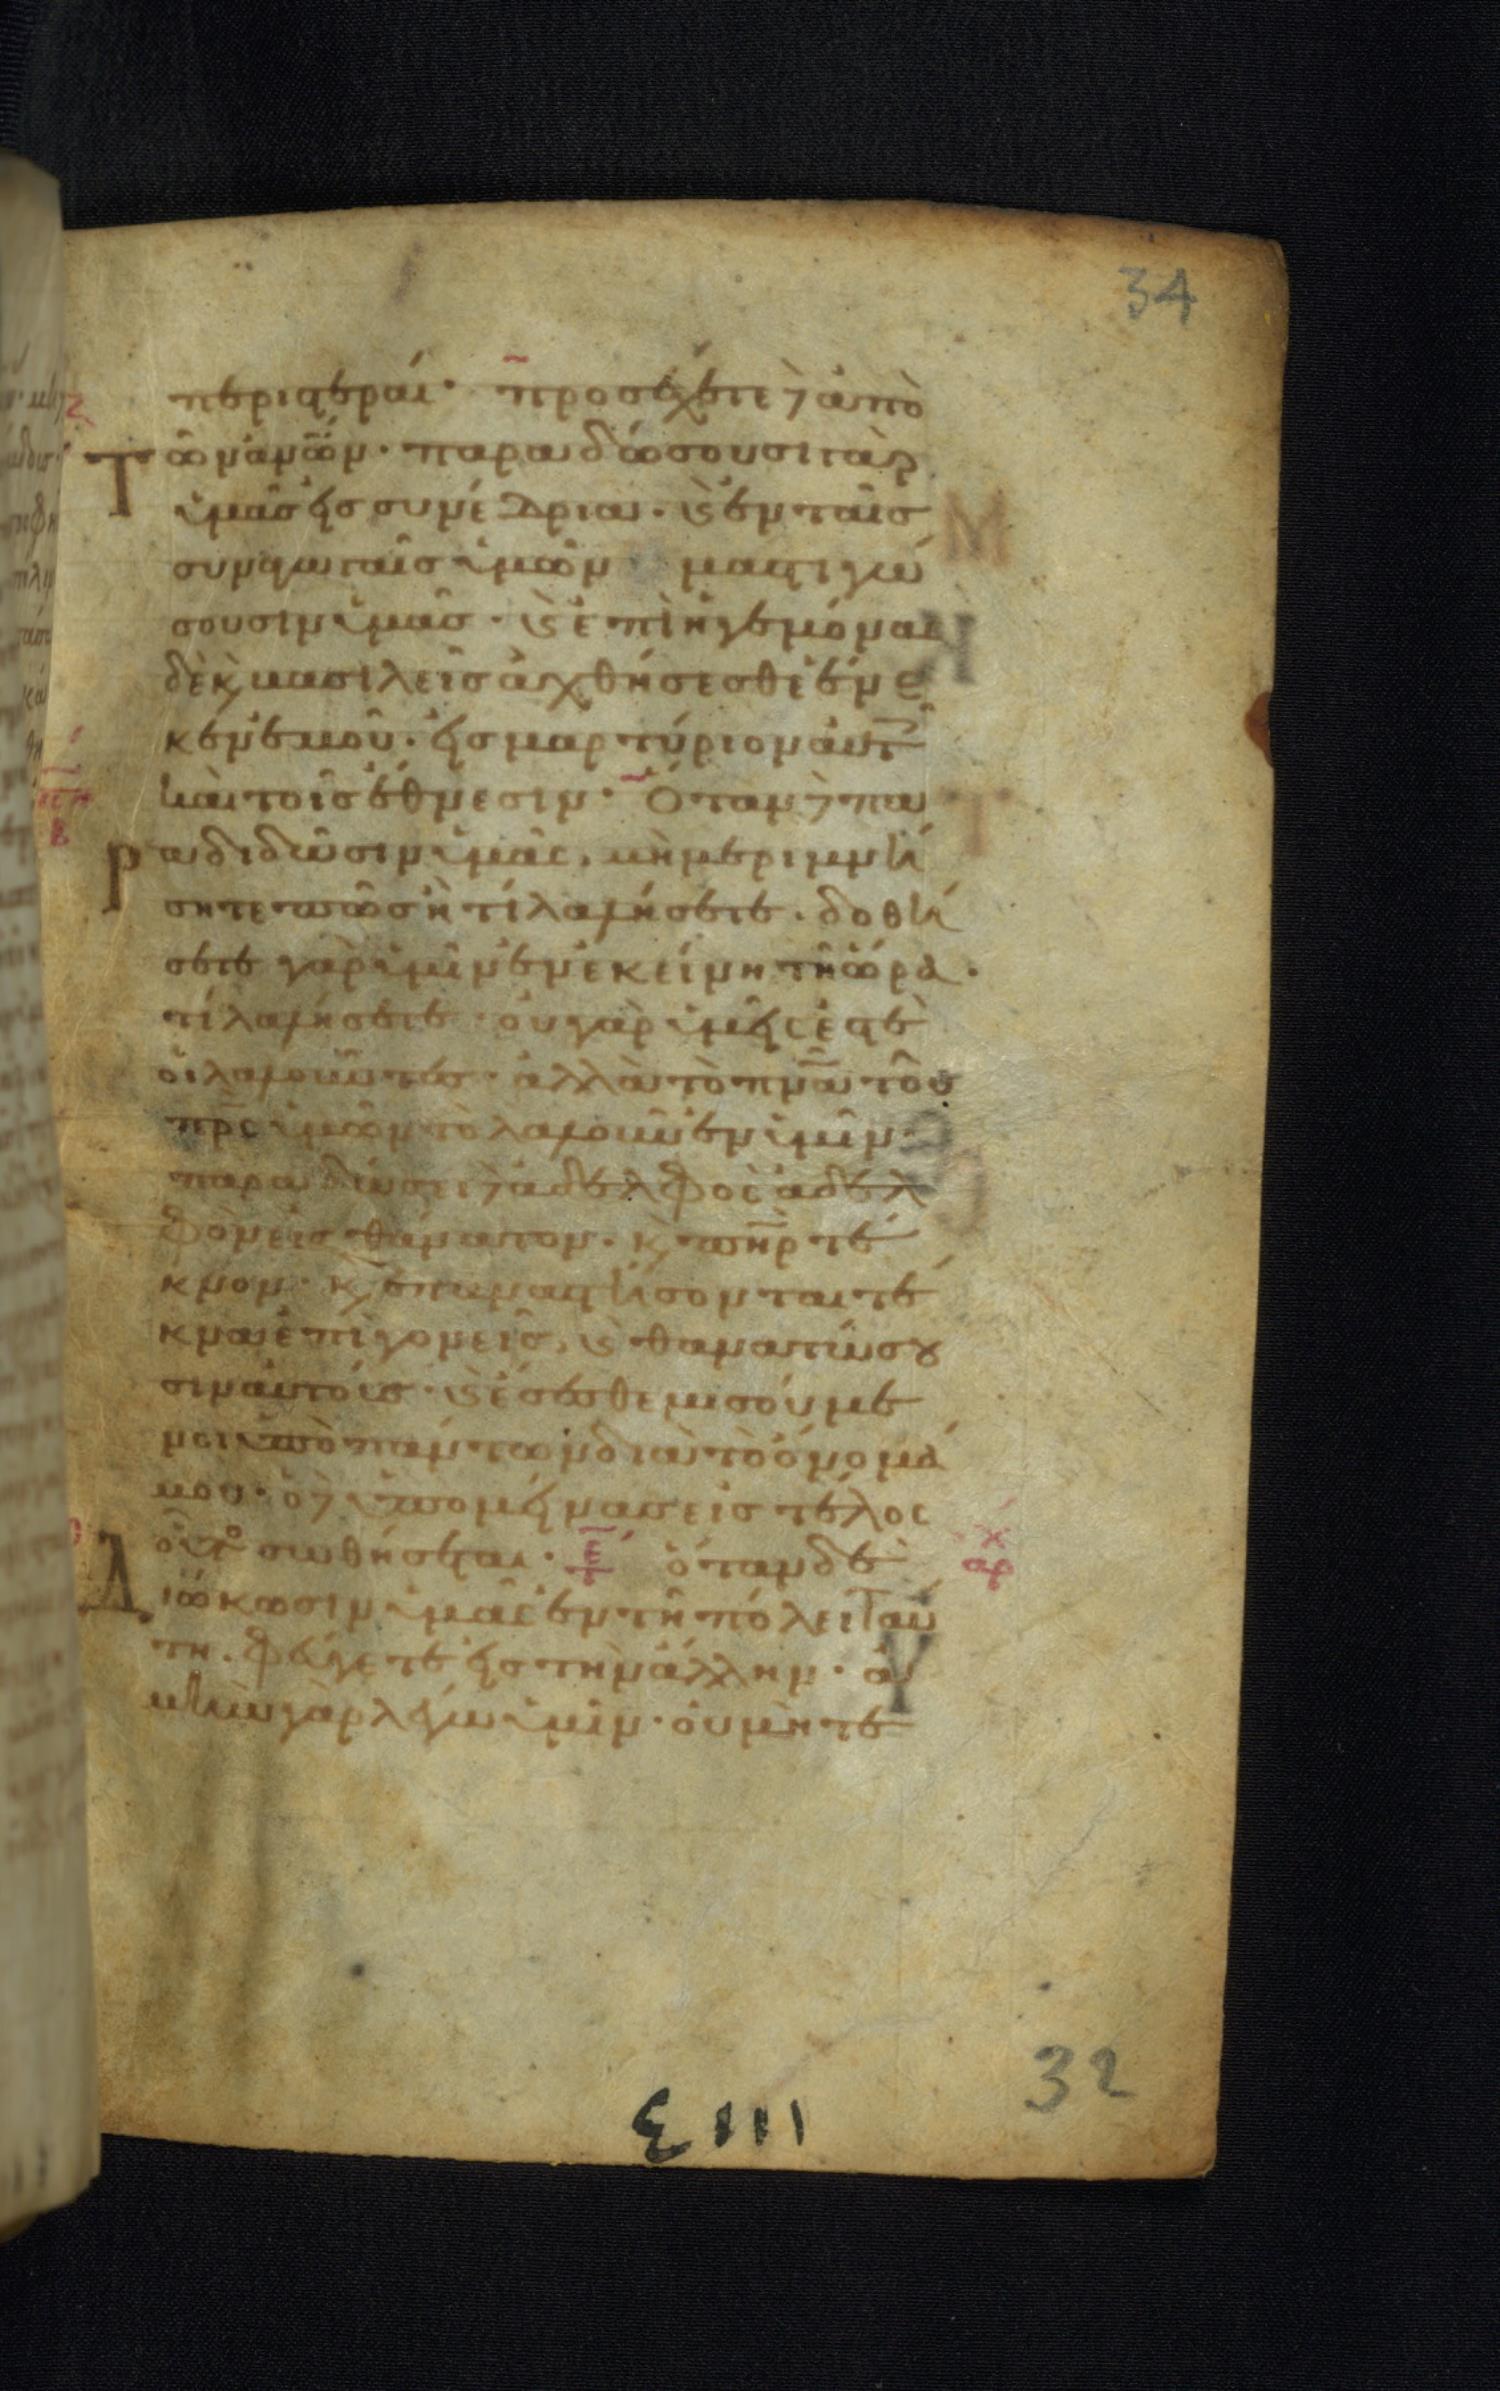 34
περιστεραί · προσέχετε δὲ ἀπὸ
τῶν ἀνῶν · παραδώσουσι γὰρ
ὑμᾶς εἰς συνέδρια · καὶ ἐν ταῖς
συναγωγαῖς ὑμῶν μαστιγώ
σουσιν ὑμᾶς · καὶ ἐπὶ ἡγεμόνας
δὲ κ βασιλεῖς ἀχθήσεσθε ἕνε
κεν ἐμοῦ · εἰς μαρτύριον αὐτοῖς
καὶ τοῖς ἔθνεσιν · Ὅταν δὲ πα
ραδιδῶσιν ὑμᾶς, μὴ μεριμνή
σητε πῶς ἢ τί λαλήσετε · δοθή
σετε γὰρ ὑμῖν ἐν ἐκείνη τῆ ὥρα ·
τί λαλήσετε · οὐ γὰρ ὑμεῖς ἐστὲ
οἱ λαλοῦντες · ἀλλὰ τὸ πνα τοῦ
πρς ὑμῶν τὸ λαλοῦν ἐν ὑμῖν ·
παραδώσει δὲ ἀδελφὸς ἀδελ
φὸν εἰς θάνατον · κ πηρ τέ
κνον · κ ἐπαναστήσονται τέ
κνα ἐπὶ γονεῖς, καὶ θανατώσου
σιν αὐτούς · καὶ ἔσεσθε μισούμε
νοι ὑπὸ πάντων διὰ τὸ ὄνομά
μου · ὁ δὲ ὑπομείνας εἰς τέλος
οὗτος σωθήσεται · ὅταν δὲ
Διώκωσιν ὑμᾶς ἐν τῆ πόλει ταύ
τη · φεύγετε εἰς τὴν ἄλλην · ἀ
μὴν γὰρ λέγω ὑμῖν · οὐ μὴ τε
32